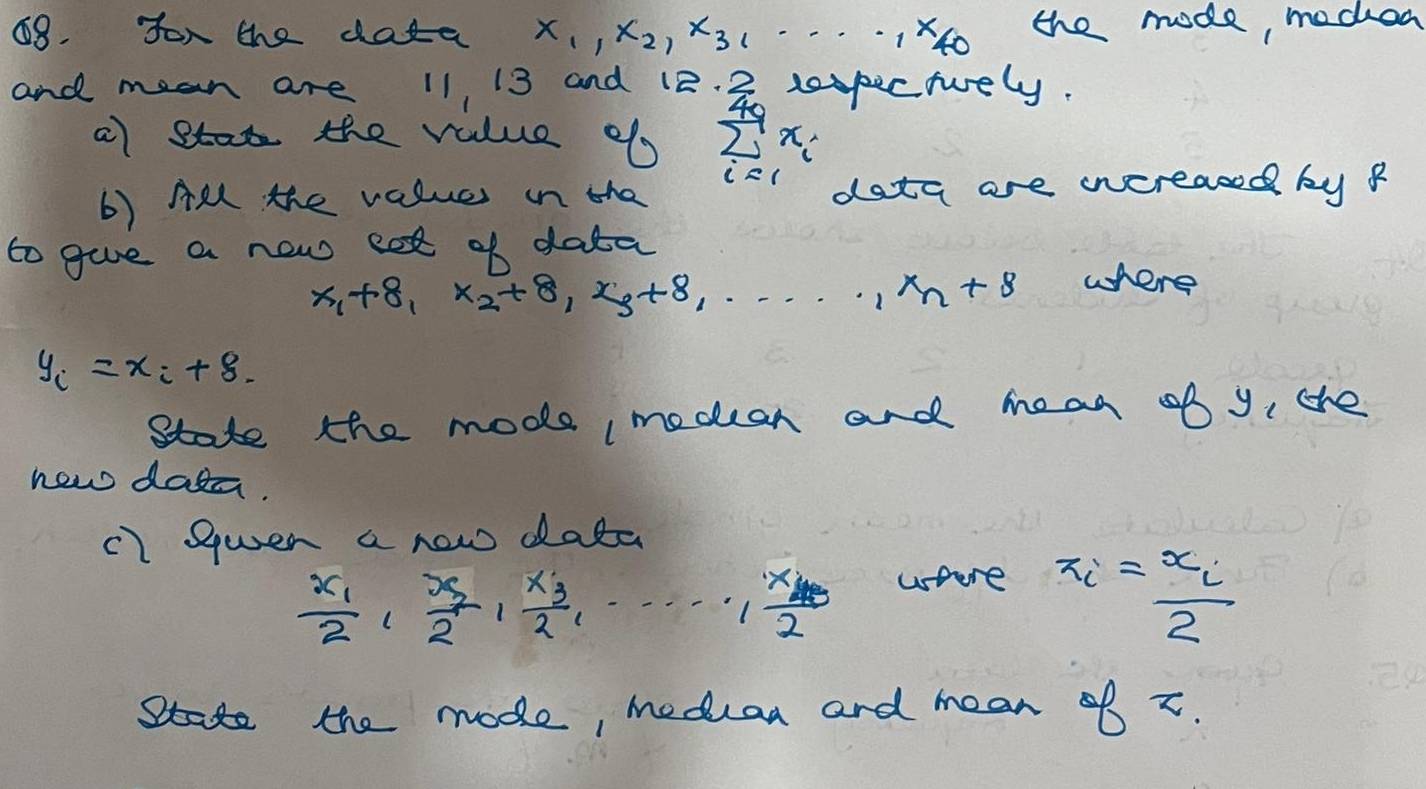 Q8. For the data x₁, x₂, x₃, ....., x₄₀ the mode, median
and mean are 11, 13 and 12.2 respectively.
a) State the value of ∑_{i=1}^{40} xᵢ
b) All the values in the data are increased by 8
to give a new set of data
x₁+8, x₂+8, x₃+8, ......, xₙ+8 where
yᵢ = xᵢ + 8.
State the mode, median and mean of y, the
new data.
c) Given a new data
x₁/2, x₂/2, x₃/2, ....., x₄₀/2 where zᵢ = xᵢ/2
State the mode, median and mean of z.